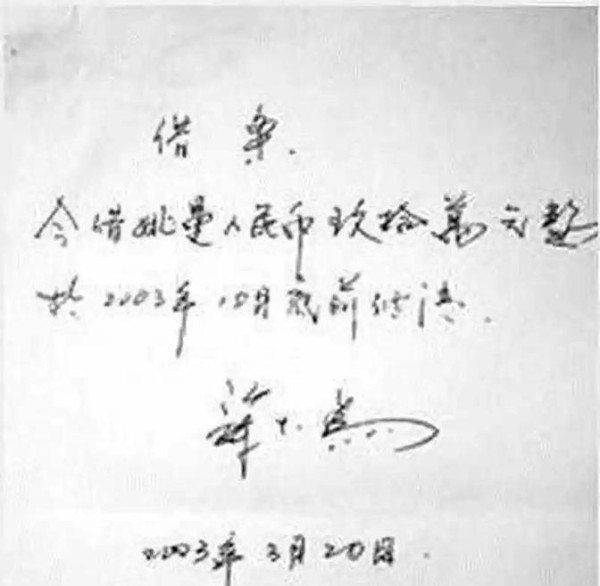 借 条.
今借姚曼人民币玖拾萬元整
於2003年10月底前付清.
2003年3月20日.